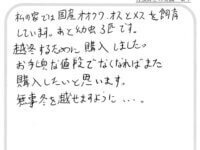 私の家では国産オオクワ、オスとメスを飼育
しています。あと幼虫3匹です。
越冬するために購入しました。
お手頃な値段でなくなればまた
購入したいと思います。
無事冬を越せますように…。